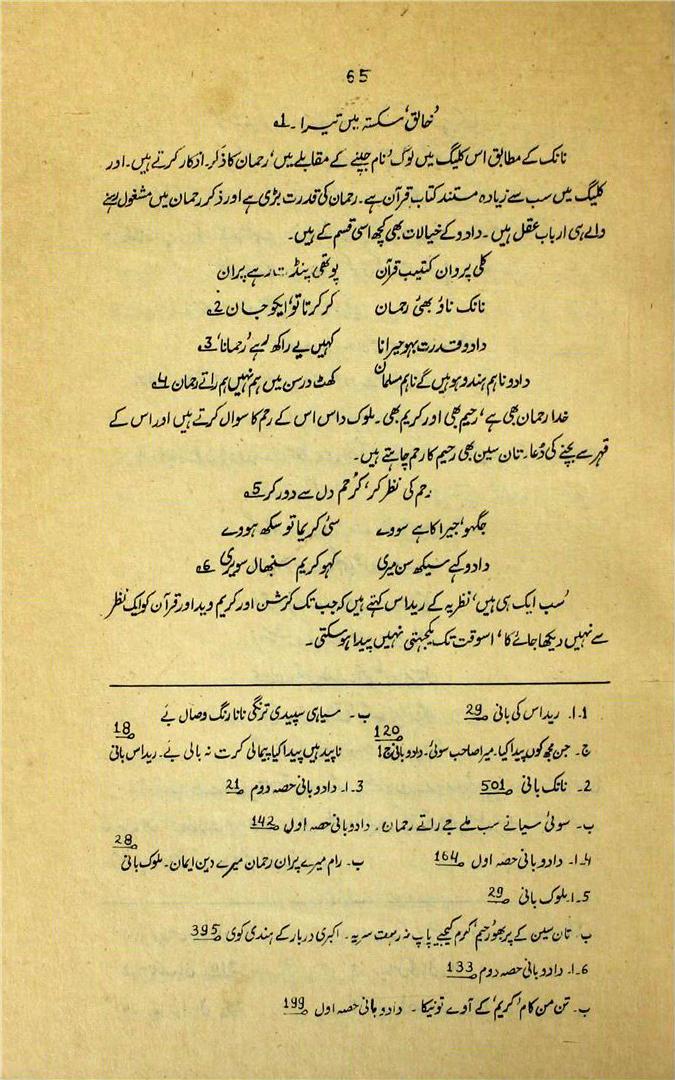 65
’خالق‘ سکستہ میں تیرا ۔ 1؎
نانک کے مطابق اس کلیگ میں لوگ ’نام جپنے کے مقابلے میں‘ رحمان کا ذکر۔ اذکار کرتے ہیں۔ اور
کلیگ میں سب سے زیادہ مستند کتاب قرآن ہے۔ رحمان کی قدرت بڑی ہے اور ذکر رحمان میں مشغول رہنے
والے ہی ارباب عقل ہیں ۔ دادو کے خیالات بھی کچھ اسی قسم کے ہیں۔
کلی پروان کتیب قرآن پوتھی پنڈت رہے پران
نانک ناؤ بھئی رحمان کر کرتا تو ’ایکو جان 2؎
دادو قدرت بہو حیرانا کہیں بے راکھ رہے ’رحمانا‘ 3؎
دادو نا ہم ہندو ہوہیں گے نا ہم مسلمان کھٹ درسن میں ہم نہیں ہم راتے رحمان 4؎
خدا رحمان بھی ہے، رحیم بھی اور کریم بھی۔ ملوک داس اس کے رحم کا سوال کرتے ہیں اور اس کے
قہر سے بچنے کی دُعا۔ تان سین بھی رحیم کا رحم چاہتے ہیں۔
رحم کی نظر کر، کرُحم دل سے دور کر 5؎
جگہو ’جیرا کاہے سووے سئی کریما تو سکھ ہووے
دادو کہے سیکھ سن میری کہو کریم سنبھال سویری 6؎
’سب ایک ہی ہیں‘ نظریہ کے ریداس کہتے ہیں کہ جب تک کرشن اور کریم وید اور قرآن کو ایک نظر
سے نہیں دیکھا جائے گا ’ اسوقت تک یکجہتی نہیں پیدا ہوسکتی۔
1۔ا۔ ریداس کی بانی 29 ب۔ سیاہی سپیدی ترنگی نانا رنگ وصال بے
ج۔ جن مجھ کوں پیدا کیا۔ میرا صاحب سوئی۔ دادو بانی ج 1 120 ناپید ہیں پیدا کیا پیمالی کرت نہ بالی بے۔ ریداس بانی 18
2۔ نانک بانی 501 3۔ا۔ دادو بانی حصہ دوم 21
ب۔ سوئی سیانے سب ملے جے راتے رحمان۔ دادو بانی حصہ اول 142
4۔ا۔ دادو بانی حصہ اول 164 ب۔ رام میرے پران رحمان میرے دین ایمان۔ ملوک بانی 28
5۔ا۔ ملوک بانی 29
ب۔ تان سین کے پربھو ’رحیم‘ کرم کیجیے پاپ نہ رہت سریہ۔ اکبری دربار کے ہندی کوی 395
6۔ا۔ دادو بانی حصہ دوم 133
ب۔ تن من کام ’کریم‘ کے آوے تو نیکا ۔ دادو بانی حصہ اول 199